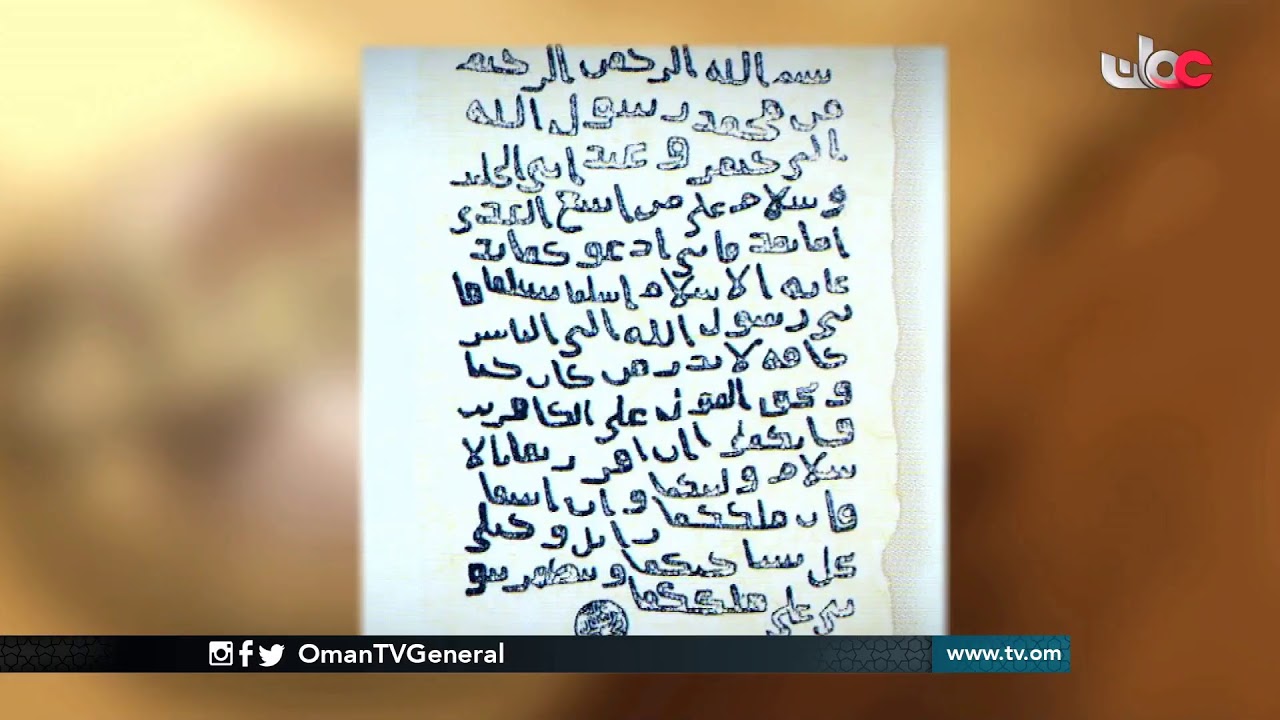 عمان
بسم الله الرحمن الرحيم
من محمد رسول الله
الى جيفر و عبد ابني الجلند
و سلام على من اتبع الهدى
اما بعد فاني ادعو كما بد
عايه الاسلام اسلما تسلما فا
ني رسول الله الى الناس
كافة لانذر من كان حيا
و يحق القول على الكافرين
فانكما ان اقررتما بالا
سلام وليتكما و ان ابيتما
فان ملككما زايل و خيلي
تحل بساحتكما و تظهر نبو
تي على ملككما
OmanTVGeneral
www.tv.om